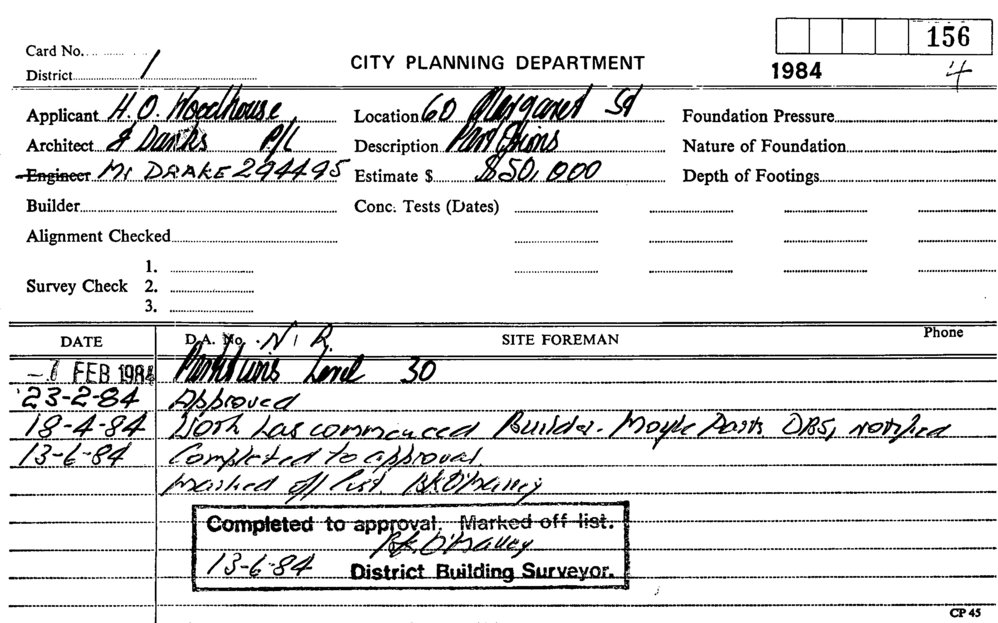 156
Card No.
CITY PLANNING DEPARTMENT
District 1
1984
4
Applicant H.O. Woodhouse
Location 60 Margaret St
Foundation Pressure
Architect & Danks P/L
Description Partitions
Nature of Foundation
Engineer Mr DRAKE 294495
Estimate $ $50,000
Depth of Footings
Builder
Conc. Tests (Dates)
Alignment Checked
1.
Survey Check 2.
3.
DATE D.A. No. N.R. SITE FOREMAN Phone
-1 FEB 1984 Partitions Level 30
23-2-84 Approved
18-4-84 Work has commenced Builder - DBS, notified
13-6-84 Completed to approval.
marked off list.
Completed to approval. Marked off list.
13-6-84 District Building Surveyor.
CP 45